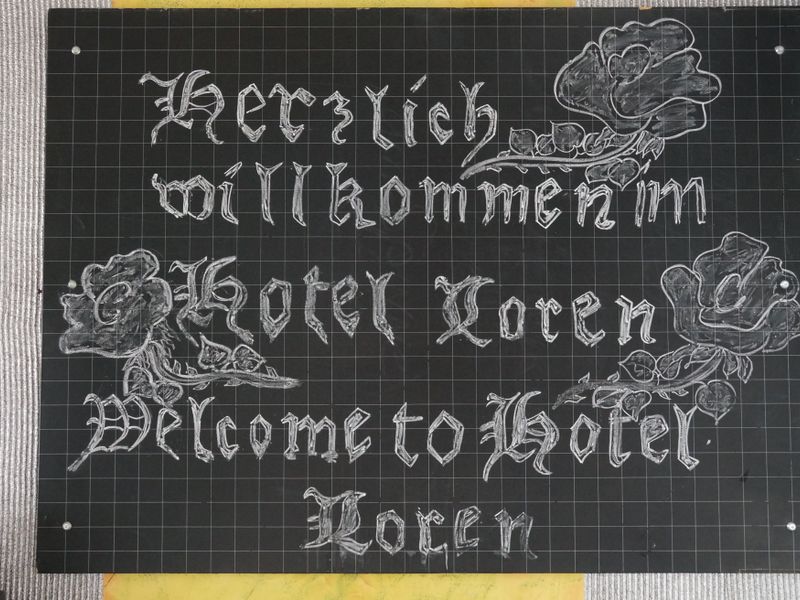 Herzlich
willkommen im
Hotel Loren
Welcome to Hotel
Loren